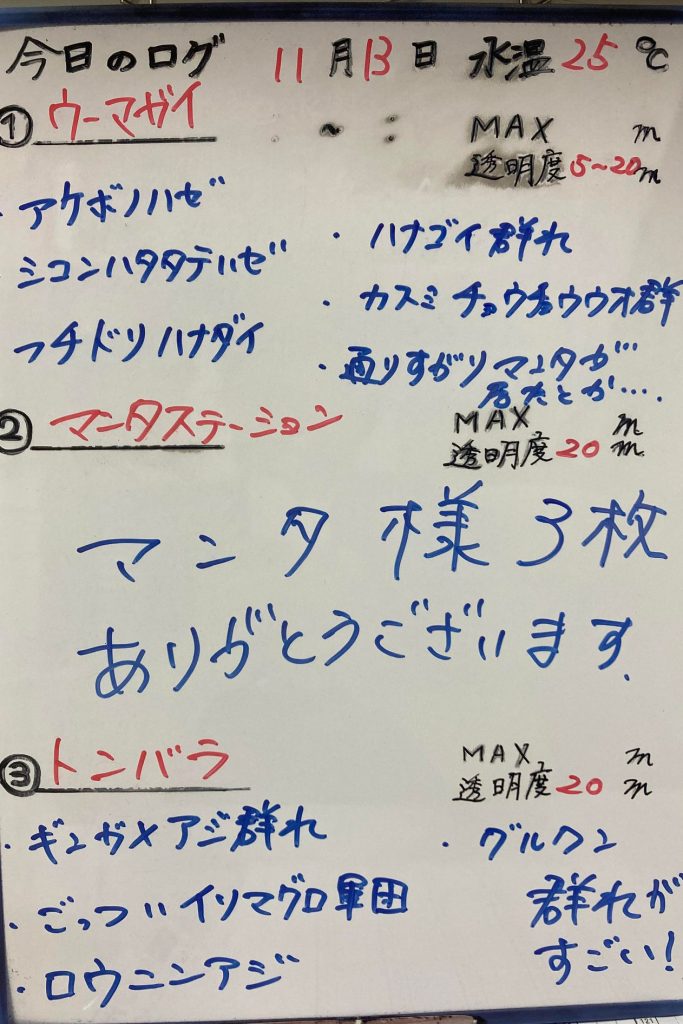 今日のログ 11月13日 水温25℃
① ウーマガイ
~ :
MAX m
透明度5~20m
・アケボノハゼ
・シコンハタタテハゼ
フチドリハナダイ
・ハナゴイ群れ
・カスミチョウチョウウオ群
・通りすがりマンタが…
居たとか….
② マンタステーション
MAX m
透明度20m
マンタ様3枚
ありがとうございます.
③ トンバラ
MAX m
透明度20m
・ギンガメアジ群れ
・ごっついイソマグロ軍団
・ロウニンアジ
・グルクン
群れが
すごい!